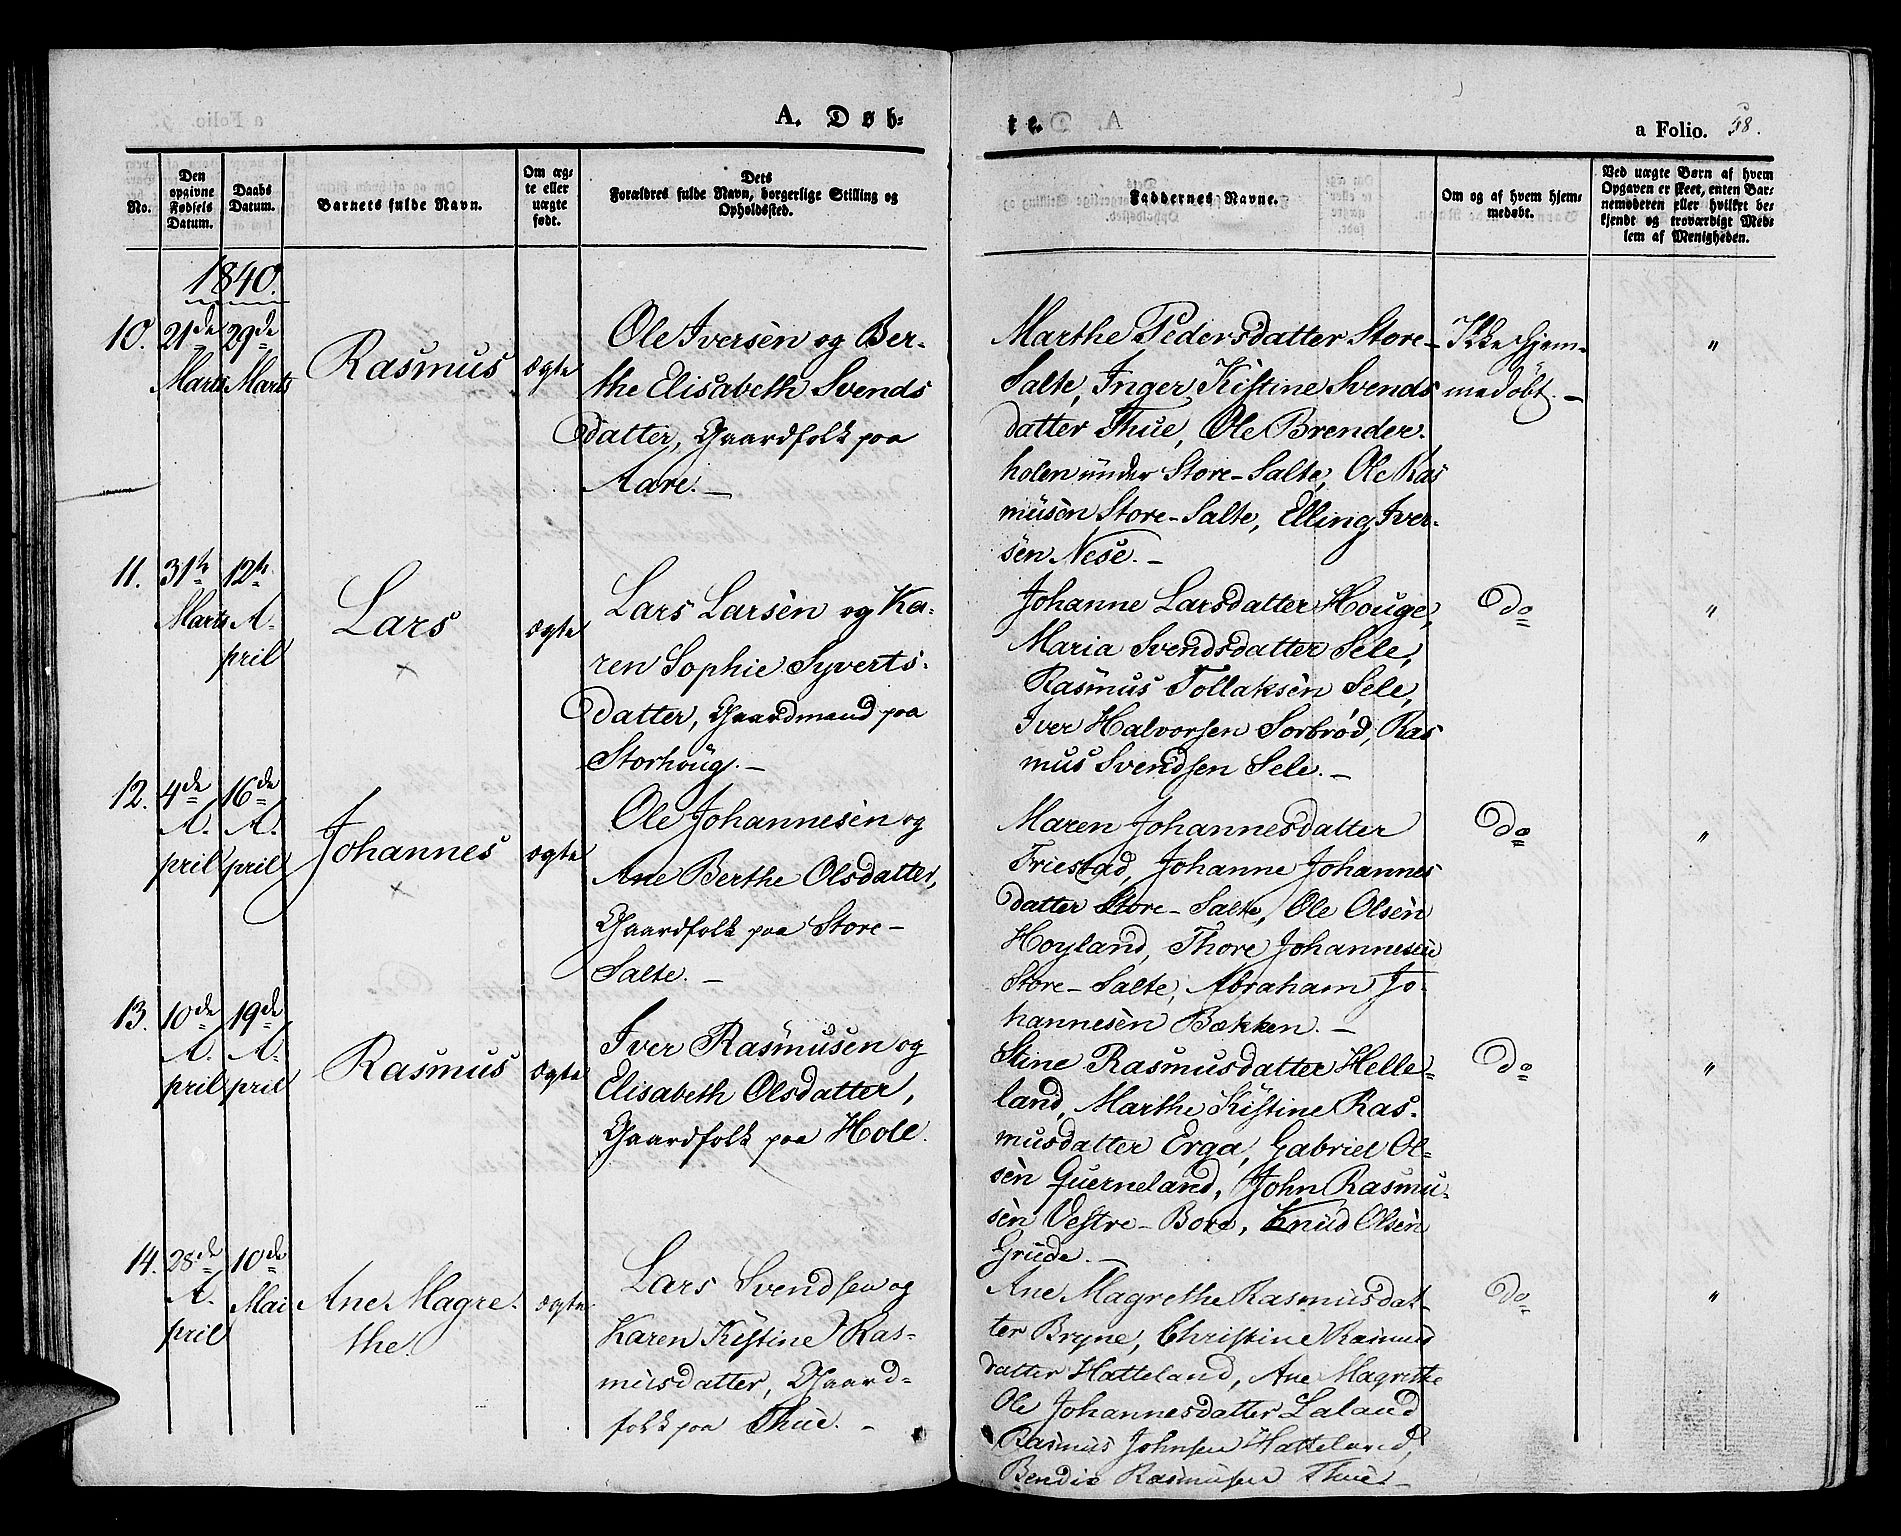 A. Døb-
te.
a Folio. 58.
No.
Den opgivne Fødsels Datum.
Daabs Datum.
Barnets fulde Navn.
Om æg-
te eller
uægte
født.
Dets
Forældres fulde Navn, borgerlige Stilling og
Opholdssted.
Faddernes Navne.
Om og af hvem hjem-
medøbt.
Ved uægte Børn af hvem
Opgaven er skeet, enten Bar-
nemoderen eller hvilket be-
kjendt og troværdigt Med-
lem af Menigheden.
1840.
10. 21de Marts 29de Marts
Rasmus
ægte
Ole Iversen og Ber-
the Elisabeth Svends
datter, Gaardfolk paa
Aare. -
Marthe Pedersdatter Store-
Salte, Inger Kistine Svends
datter Thue, Ole Brender-
holen under Store-Salte, Ole Ras
musen Store-Salte, Elling Iver-
sen Nese. -
Ikke hjem-
medøbt. -
"
11. 31te Marts 12te A-
pril
Lars
×
ægte
Lars Larsen og Ka-
ren Sophie Syverts-
datter, Gaardmand paa
Storhoug. -
Johanne Larsdatter Houge,
Maria Svendsdatter Sele,
Rasmus Tollaksen Sele,
Iver Halvorsen Sorbrød, Ras
mus Svendsen Sele. -
Do
"
12. 4de A-
pril 16de A-
pril
Johannes
×
ægte
Ole Johannesen og
Ane Berthe Olsdatter,
Gaardfolk paa Store-
Salte. -
Maren Johannesdatter
Friestad, Johanne Johannes
datter Store-Salte, Ole Olsen
Hoyland, Thore Johannesen
Store-Salte, Abraham Jo-
hannesen Bækken. -
Do
"
13. 10de A-
pril 19de A-
pril
Rasmus
ægte
Iver Rasmusen og
Elisabeth Olsdatter,
Gaardfolk paa Hole.
Stine Rasmusdatter Helle-
land, Marthe Kistine Ras-
musdatter Erga, Gabriel Ol-
sen Querneland, John Rasmu-
sen Vestre-Bore, Knud Olsen
Grude. -
Do
"
14. 28de A-
pril 10de Mai
Ane Magre-
the.
ægte
Lars Svendsen og
Karen Kistine Ras-
musdatter, Gaard-
folk paa Thue. -
Ane Magrethe Rasmusdat-
ter Bryne, Christine Rasmus
datter Hatteland, Ane Magrethe
Ole Johannesdatter Laland
Rasmus Johnsen Hatteland,
Bendix Rasmusen Thue. -
Do
"